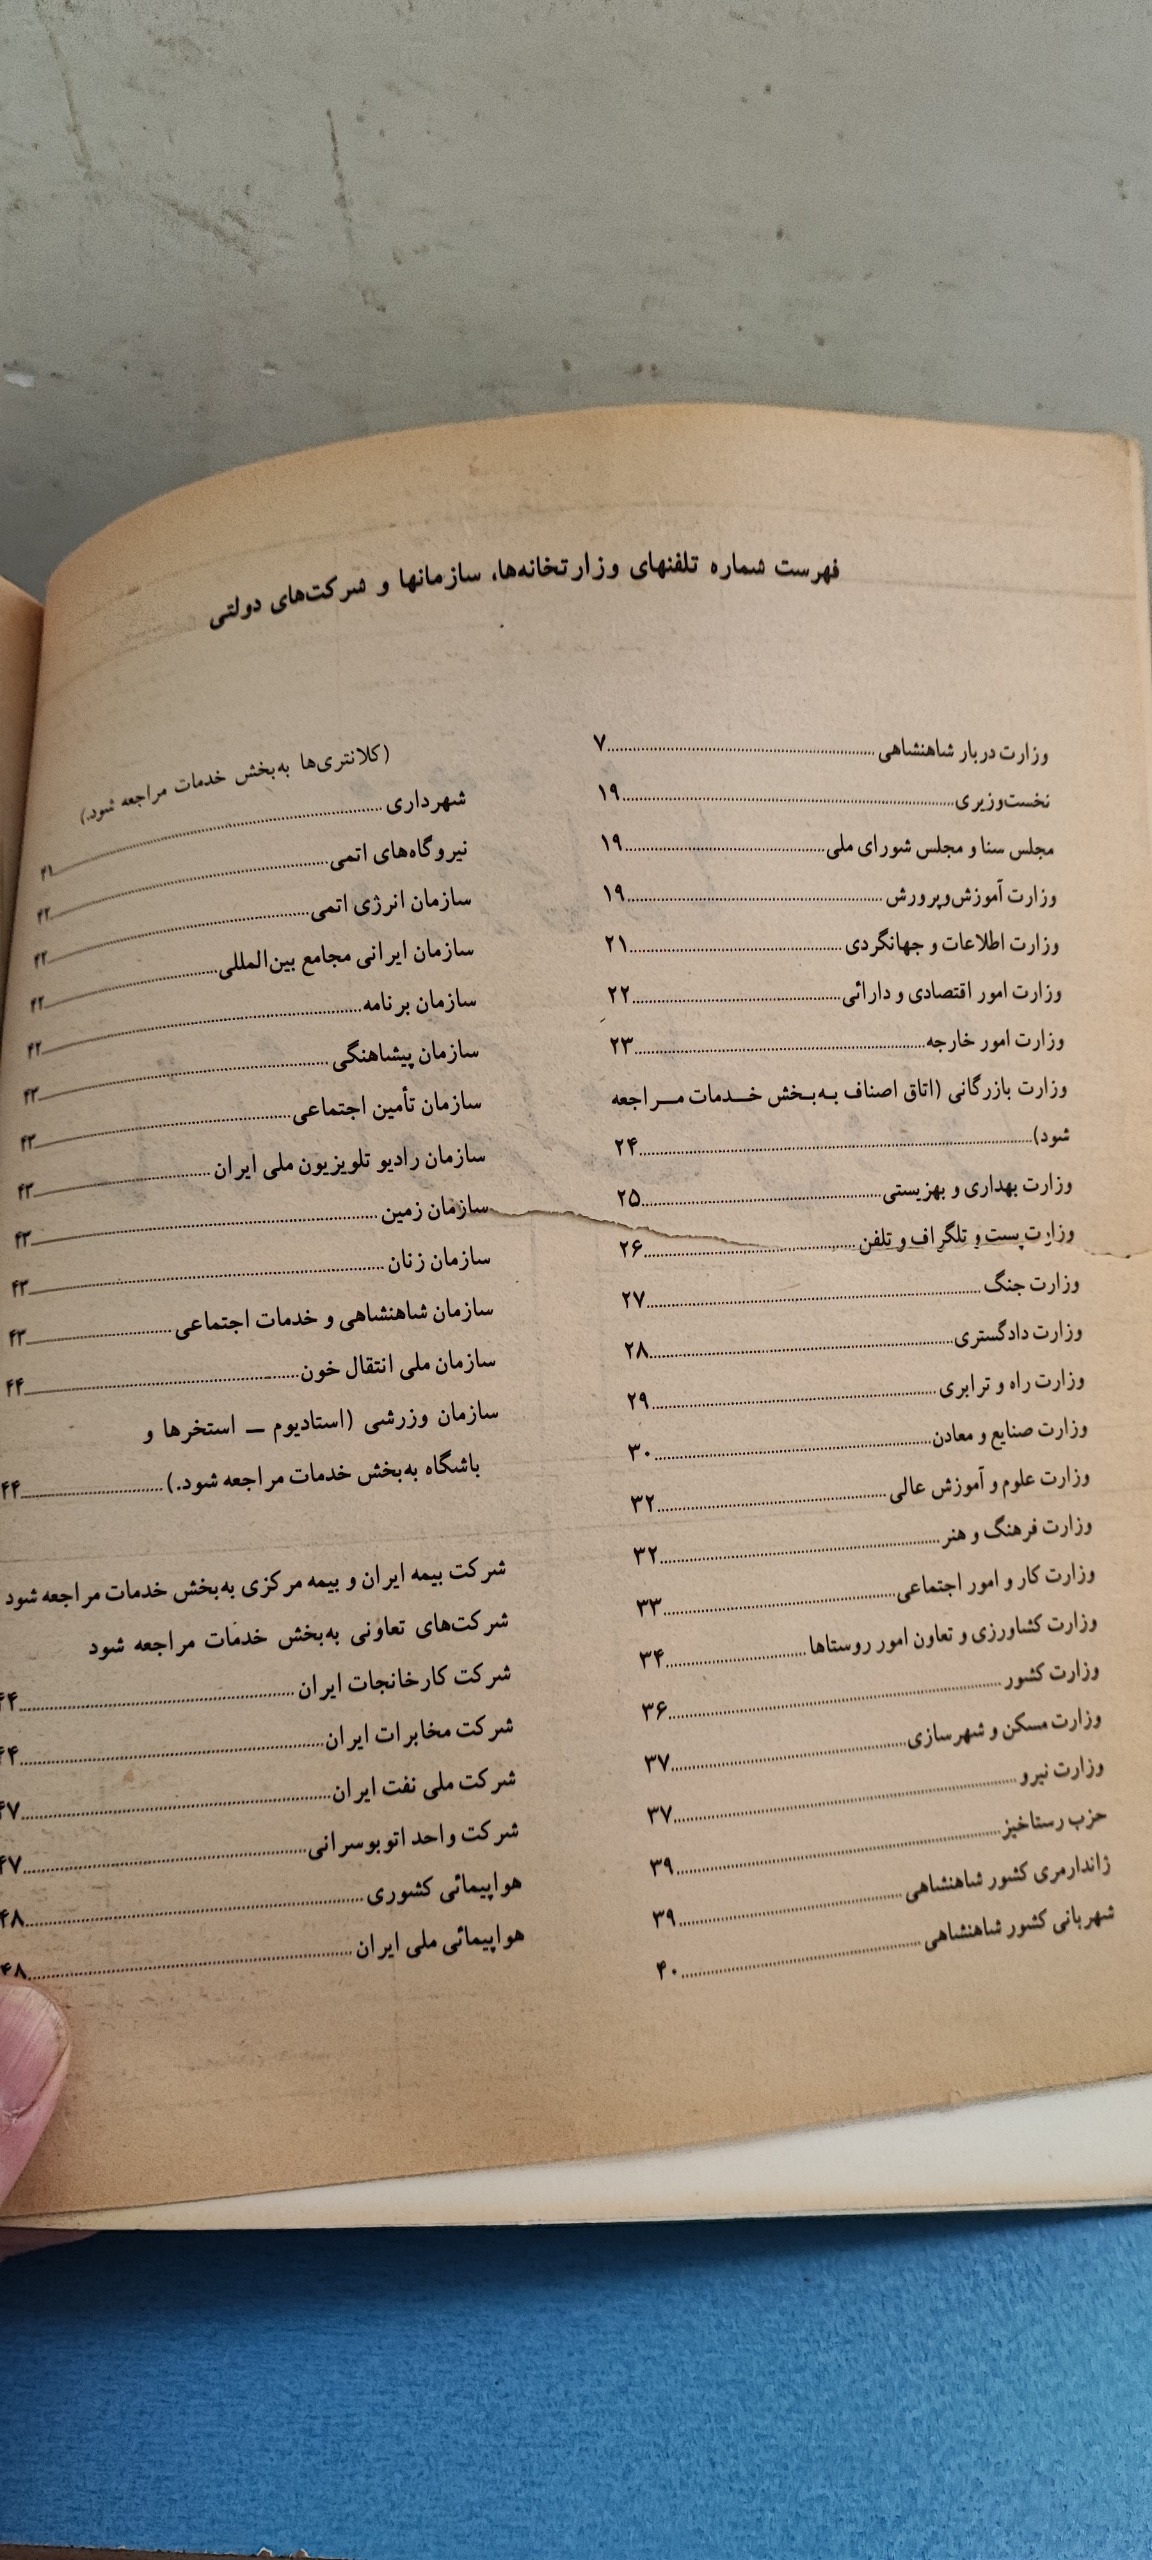 فهرست شماره تلفنهای وزارتخانه‌ها، سازمانها و شرکت‌های دولتی
وزارت دربار شاهنشاهی ۷
نخست‌وزیری ۱۹
مجلس سنا و مجلس شورای ملی ۱۹
وزارت آموزش‌وپرورش ۱۹
وزارت اطلاعات و جهانگردی ۲۱
وزارت امور اقتصادی و دارائی ۲۲
وزارت امور خارجه ۲۳
وزارت بازرگانی (اتاق اصناف به‌بخش خدمات مراجعه
شود) ۲۴
وزارت بهداری و بهزیستی ۲۵
وزارت پست و تلگراف و تلفن ۲۶
وزارت جنگ ۲۷
وزارت دادگستری ۲۸
وزارت راه و ترابری ۲۹
وزارت صنایع و معادن ۳۰
وزارت علوم و آموزش عالی ۳۲
وزارت فرهنگ و هنر ۳۲
وزارت کار و امور اجتماعی ۳۳
وزارت کشاورزی و تعاون امور روستاها ۳۴
وزارت کشور ۳۶
وزارت مسکن و شهرسازی ۳۷
وزارت نیرو ۳۷
حزب رستاخیز ۳۹
ژاندارمری کشور شاهنشاهی ۳۹
شهربانی کشور شاهنشاهی ۴۰
(کلانتری‌ها به‌بخش خدمات مراجعه شود.)
شهرداری ۴۱
نیروگاه‌های اتمی ۴۲
سازمان انرژی اتمی ۴۲
سازمان ایرانی مجامع بین‌المللی ۴۲
سازمان برنامه ۴۲
سازمان پیشاهنگی ۴۳
سازمان تأمین اجتماعی ۴۳
سازمان رادیو تلویزیون ملی ایران ۴۳
سازمان زمین ۴۳
سازمان زنان ۴۳
سازمان شاهنشاهی و خدمات اجتماعی ۴۳
سازمان ملی انتقال خون ۴۴
سازمان ورزشی (استادیوم — استخرها و
باشگاه به‌بخش خدمات مراجعه شود.) ۴۴
شرکت بیمه ایران و بیمه مرکزی به‌بخش خدمات مراجعه شود
شرکت‌های تعاونی به‌بخش خدمات مراجعه شود
شرکت کارخانجات ایران ۴۴
شرکت مخابرات ایران ۴۴
شرکت ملی نفت ایران ۴۷
شرکت واحد اتوبوسرانی ۴۷
هواپیمائی کشوری ۴۸
هواپیمائی ملی ایران ۴۸